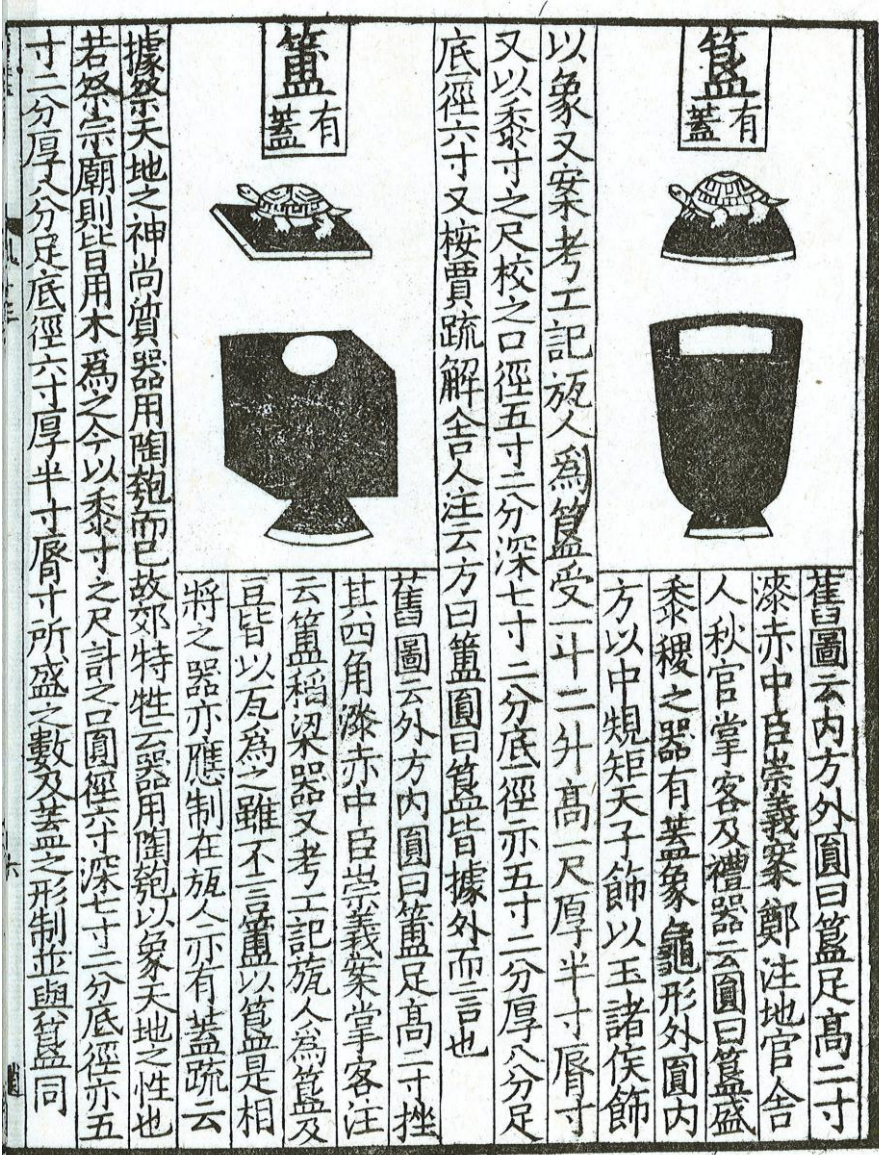 簋
有
蓋
舊圖云内方外圎曰簋足髙二寸
漆赤中臣崇義案鄭注地官舎
人秋官掌客及禮器云圎曰簋盛
黍稷之器有蓋象龜形外圎内
方以中規矩天子飾以玉諸侯飾
以象又案考工記瓬人爲簋受一斗二升髙一尺厚半寸脣寸
又以黍寸之尺校之口徑五寸二分深七寸二分底徑亦五寸二分厚八分足
底徑六寸又桉賈䟽解舎人注云方曰簠圎曰簋皆據外而言也
簠
有
蓋
舊圖云外方内圎曰簠足髙二寸挫
其四角漆赤中臣崇義案掌客注
云簠稻梁器又考工記瓬人爲簋及
豆皆以瓦爲之雖不言簠以簋是相
將之器亦應制在瓬人亦有蓋䟽云
據祭天地之神尚質器用陶匏而已故郊特牲云器用陶匏以象天地之性也
若祭宗廟則皆用木爲之今以黍寸之尺計之口圎徑六寸深七寸二分底徑亦五
寸二分厚八分足底徑六寸厚半寸脣寸所盛之數及蓋之形制並與簋同